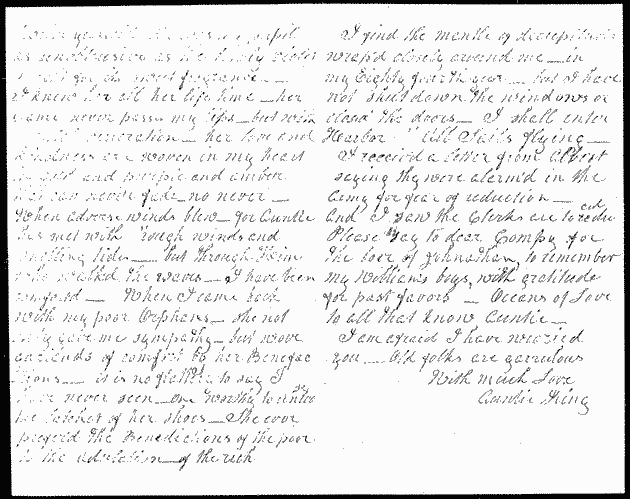 as unobtrusive as the lovely violet
I knew her all her life time – her
name never pass'd my lips – but with
veneration – her love and
kindness are woven in my heart
in gold and purple and amber
that can never fade no never –
When adverse winds blew – for Auntie
has met with rough winds and
swelling tides – but through Him
who walk'd the waves – I have been
When I came back
with my poor Orphans – she not
only gave me sympathy – but wove
garlands of comfort by her Benefac
tions – it is no flattery to say I
have never seen – one worthy to unloose
the latchet of her shoes – She ever
prefer'd the Benedictions of the poor
to the adulation – of the rich
I find the mantle of decrepitude
wrap'd closely around me – in
my Eighty fourth year – but I have
not shut down the windows or
closed the doors – I shall enter
Harbor "All Sails flying –
I receiv'd a letter from Albert
saying they were alarm'd in the
Army for fear of reduction –
And I saw the Clerks are to reduced
Please say to dear Compy for
the love of Johnathan, to remember
my William's boys, with gratitude
for past favors – Oceans of Love
to all that know Auntie –
I am afraid I have wearied
you – Old folks are garrulous
With much Love
Auntie King